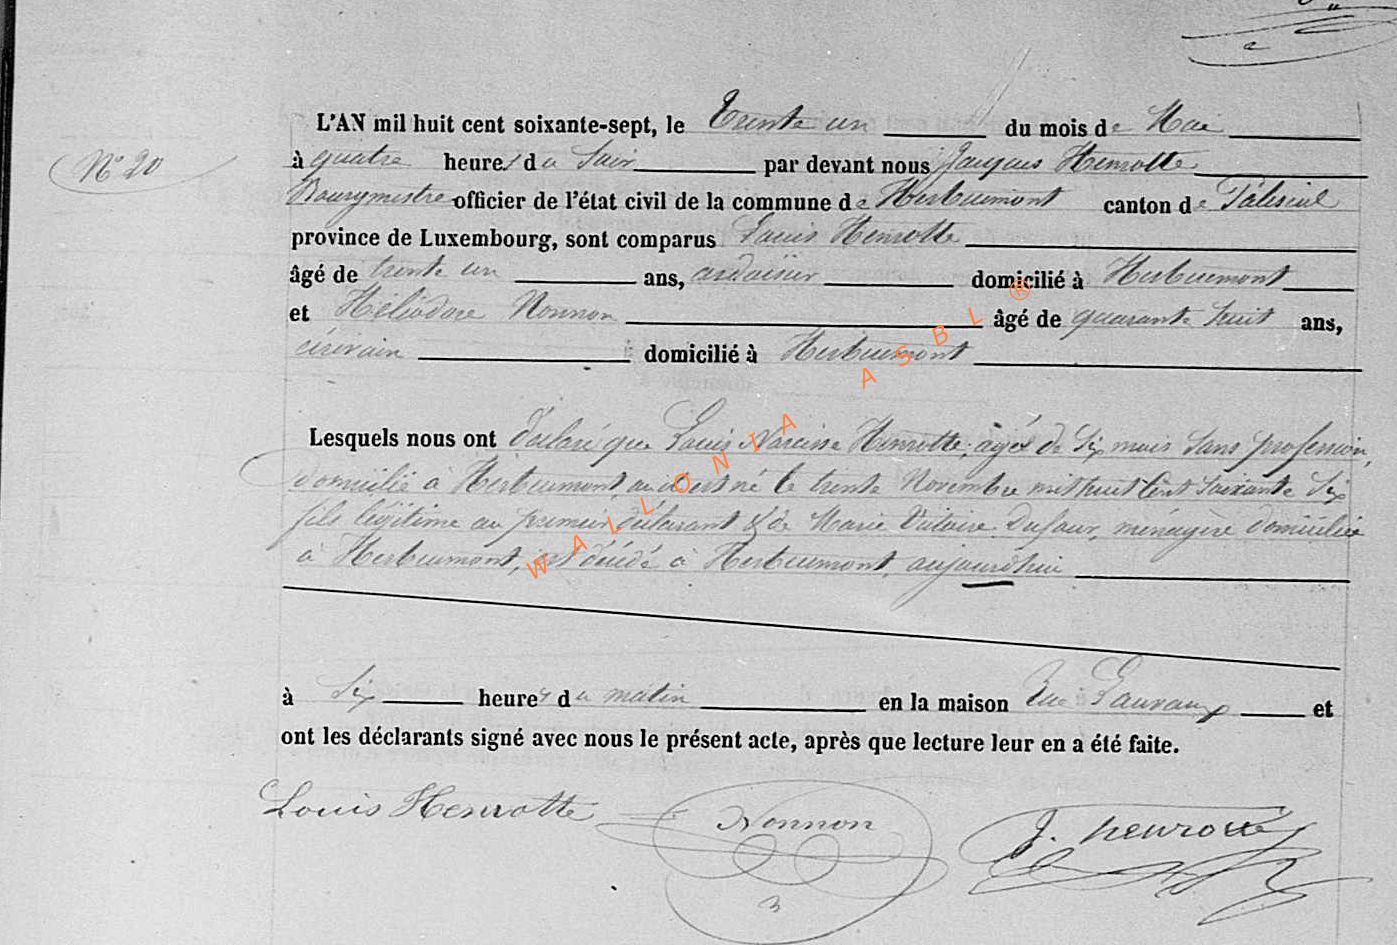 N° 20
L'AN mil huit cent soixante-sept, le Trente un du mois de Mai
à quatre heures du Soir par devant nous Jacques Henrotte
Bourgmestre officier de l'état civil de la commune de Herbeumont canton de Paliseul
province de Luxembourg, sont comparus Louis Henrotte
âgé de trente un ans, ardoisier domicilié à Herbeumont
et Héliodore Nonnon âgé de quarante huit ans,
écrivain domicilié à Herbeumont
Lesquels nous ont déclaré que Louis Narcisse Henrotte, agé de Six mois Sans profession,
domicilié à Herbeumont, où il est né le trente Novembre mil huit Cent Soixante Six
fils légitime au premier déclarant & de Marie Victoire Dufour, ménagère domiciliée
à Herbeumont, est décédé à Herbeumont, aujourd'hui
à Six heures du matin en la maison Rue Lauvaux et
ont les déclarants signé avec nous le présent acte, après que lecture leur en a été faite.
Louis Henrotte Nonnon J. henrotte
WALLONIA ASBL ®